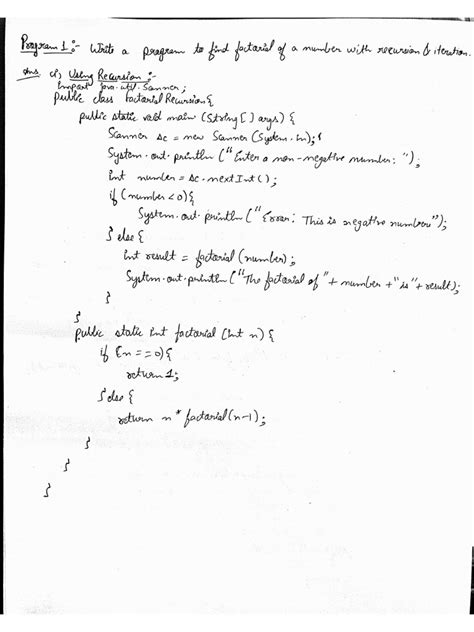 Program 1:- Write a program to find factorial of a number with recursion & iteration.
Ans. Using Recursion:-
import java.util.Scanner;
public class factorialRecursion{
public static void main (String[] args) {
Scanner sc = new Scanner (System.in);
System.out.println ("Enter a non-negative number: ");
int number = sc.nextInt();
if (number <0){
System.out.println ("Error: This is negative number");
} else {
int result = factorial (number);
System.out.println ("The factorial of " + number + "is" + result);
}
}
public static int factorial (int n) {
if (n == 0){
return 1;
} else {
return n * factorial (n-1);
}
}
}